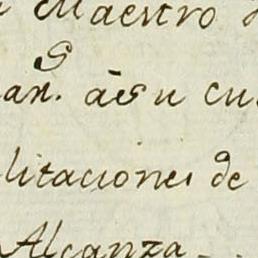 Maestro
S
an. à su cu
litaciones de
Alcanza